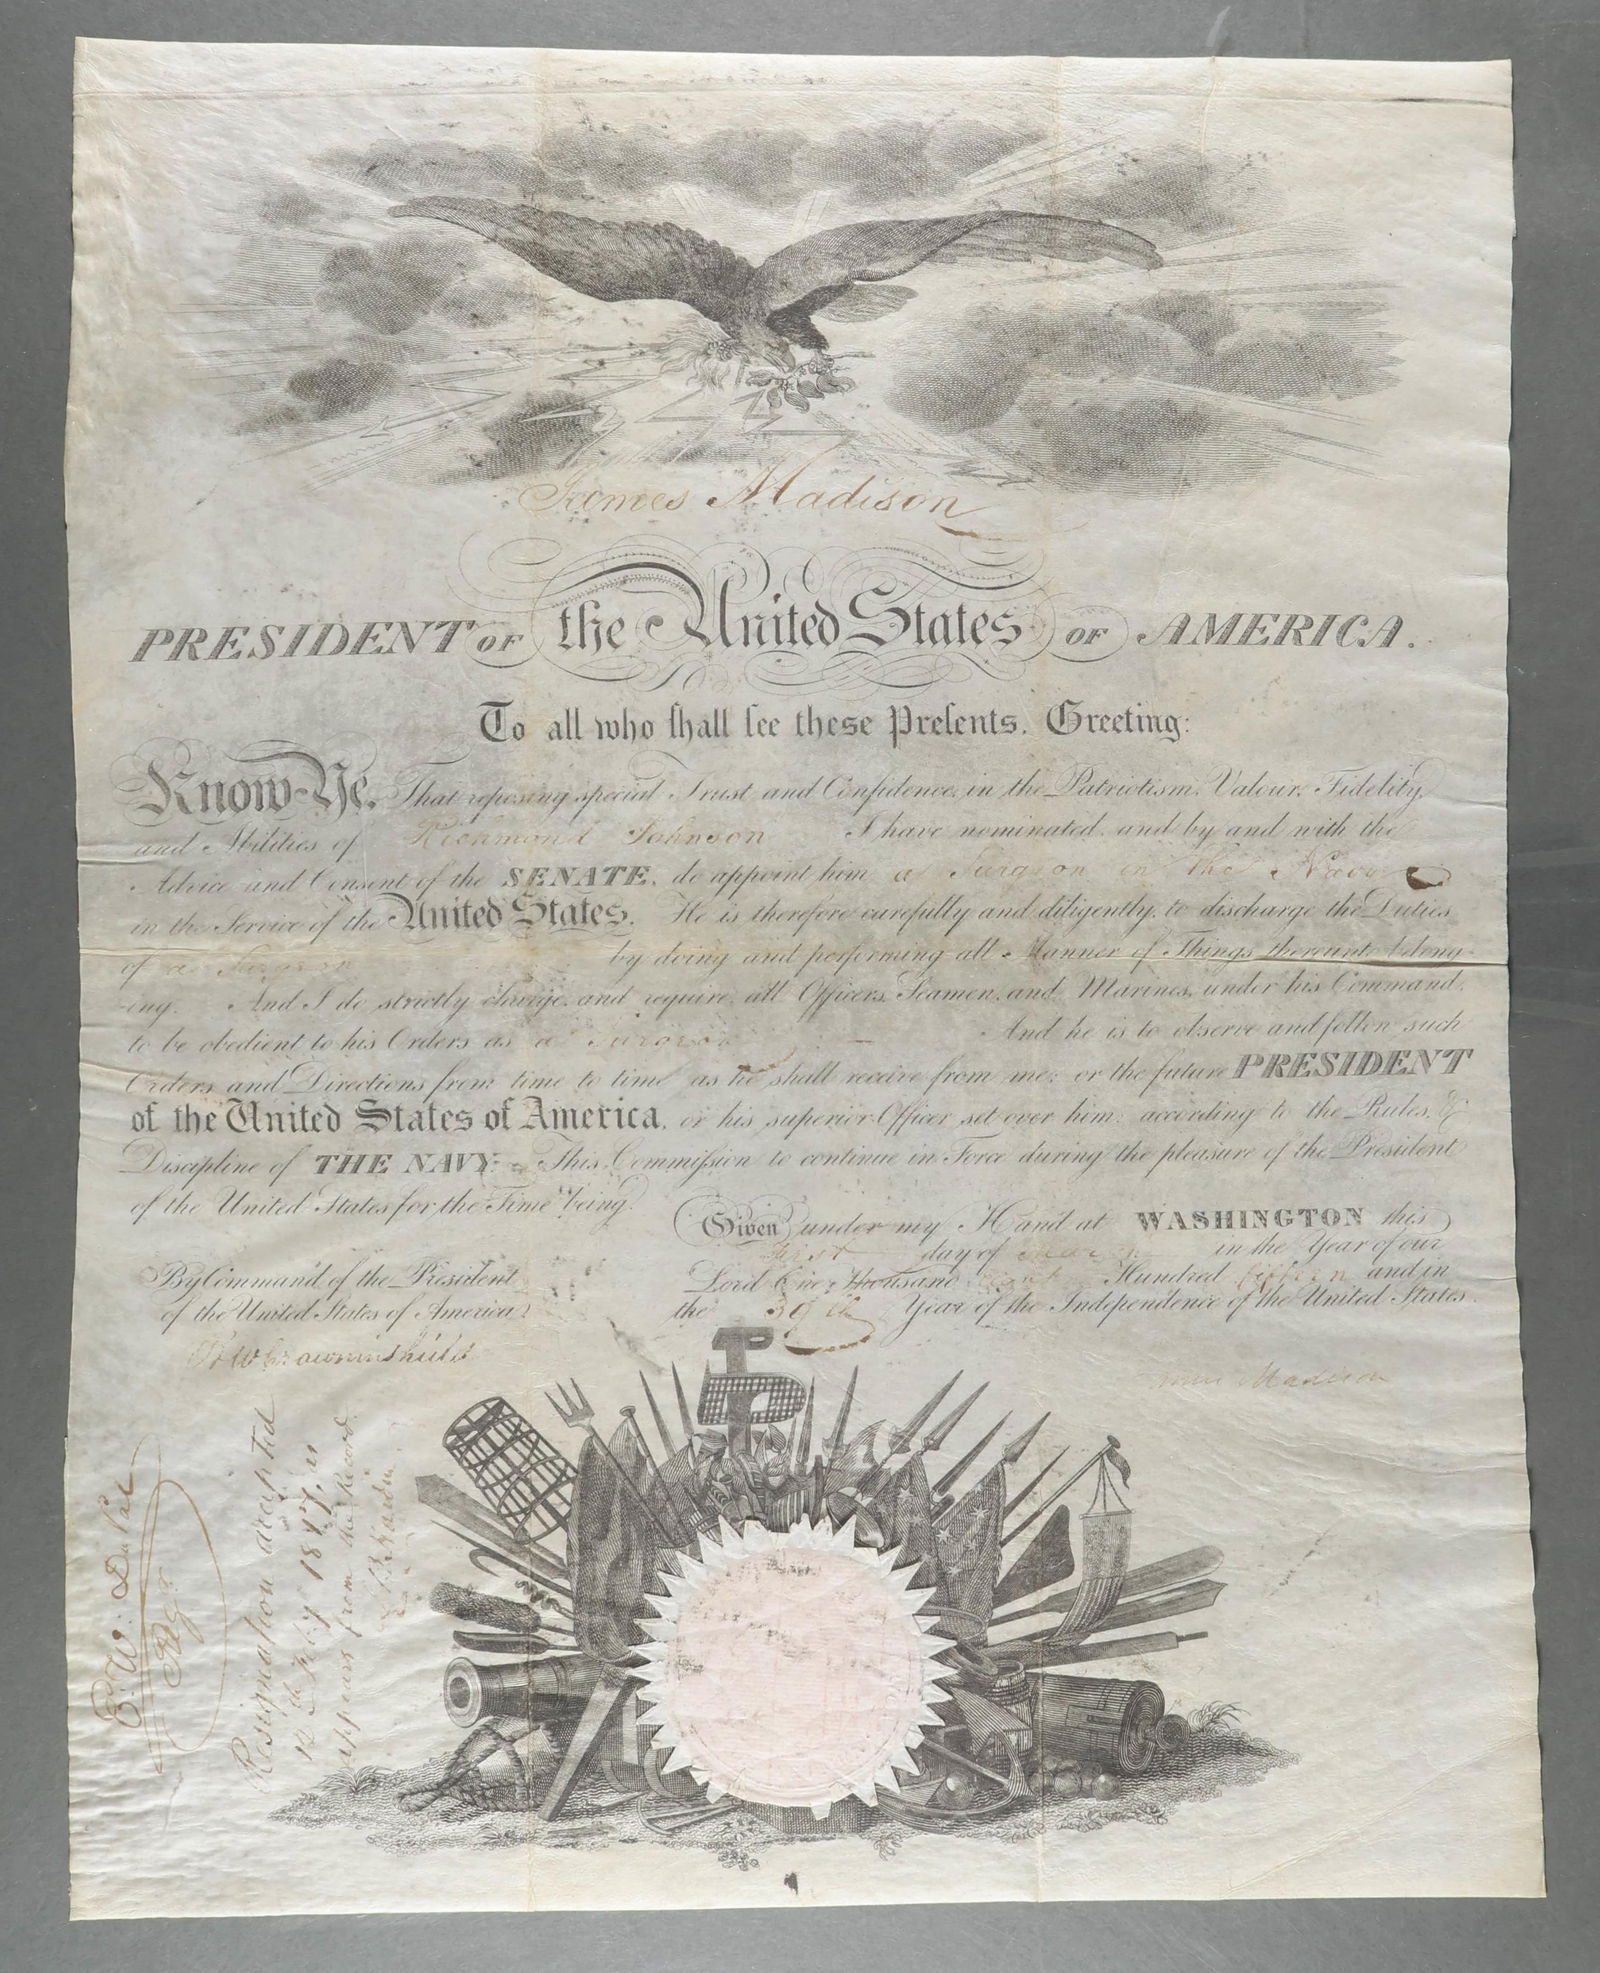 James Madison
PRESIDENT OF the United States OF AMERICA.
To all who shall see these Presents, Greeting:
Know Ye, That reposing special Trust and Confidence, in the Patriotism, Valour, Fidelity,
and Abilities of Richmond Johnson I have nominated, and by and with the
Advice and Consent of the SENATE, do appoint him a Surgeon in the Navy
in the Service of the United States. He is therefore carefully and diligently, to discharge the Duties
of a Surgeon by doing and performing all Manner of Things thereunto belong-
-ing. And I do strictly charge, and require all Officers, Seamen, and Marines, under his Command,
to be obedient to his Orders as a Surgeon And he is to observe and follow such
Orders and Directions from time to time as he shall receive from me; or the future PRESIDENT
of the United States of America, or his superior Officer set over him, according to the Rules, &
Discipline of THE NAVY. This Commission to continue in Force during the pleasure of the President
of the United States for the Time being.
Given under my Hand at WASHINGTON this
First day of March in the Year of our
Lord One thousand eight Hundred fifteen and in
the 39th Year of the Independence of the United States.
By Command of the President
of the United States of America
BW Crowninshield
James Madison
E. W. DuVal
Resignation accepted
12th Feby 1817, as
appears from the Record.